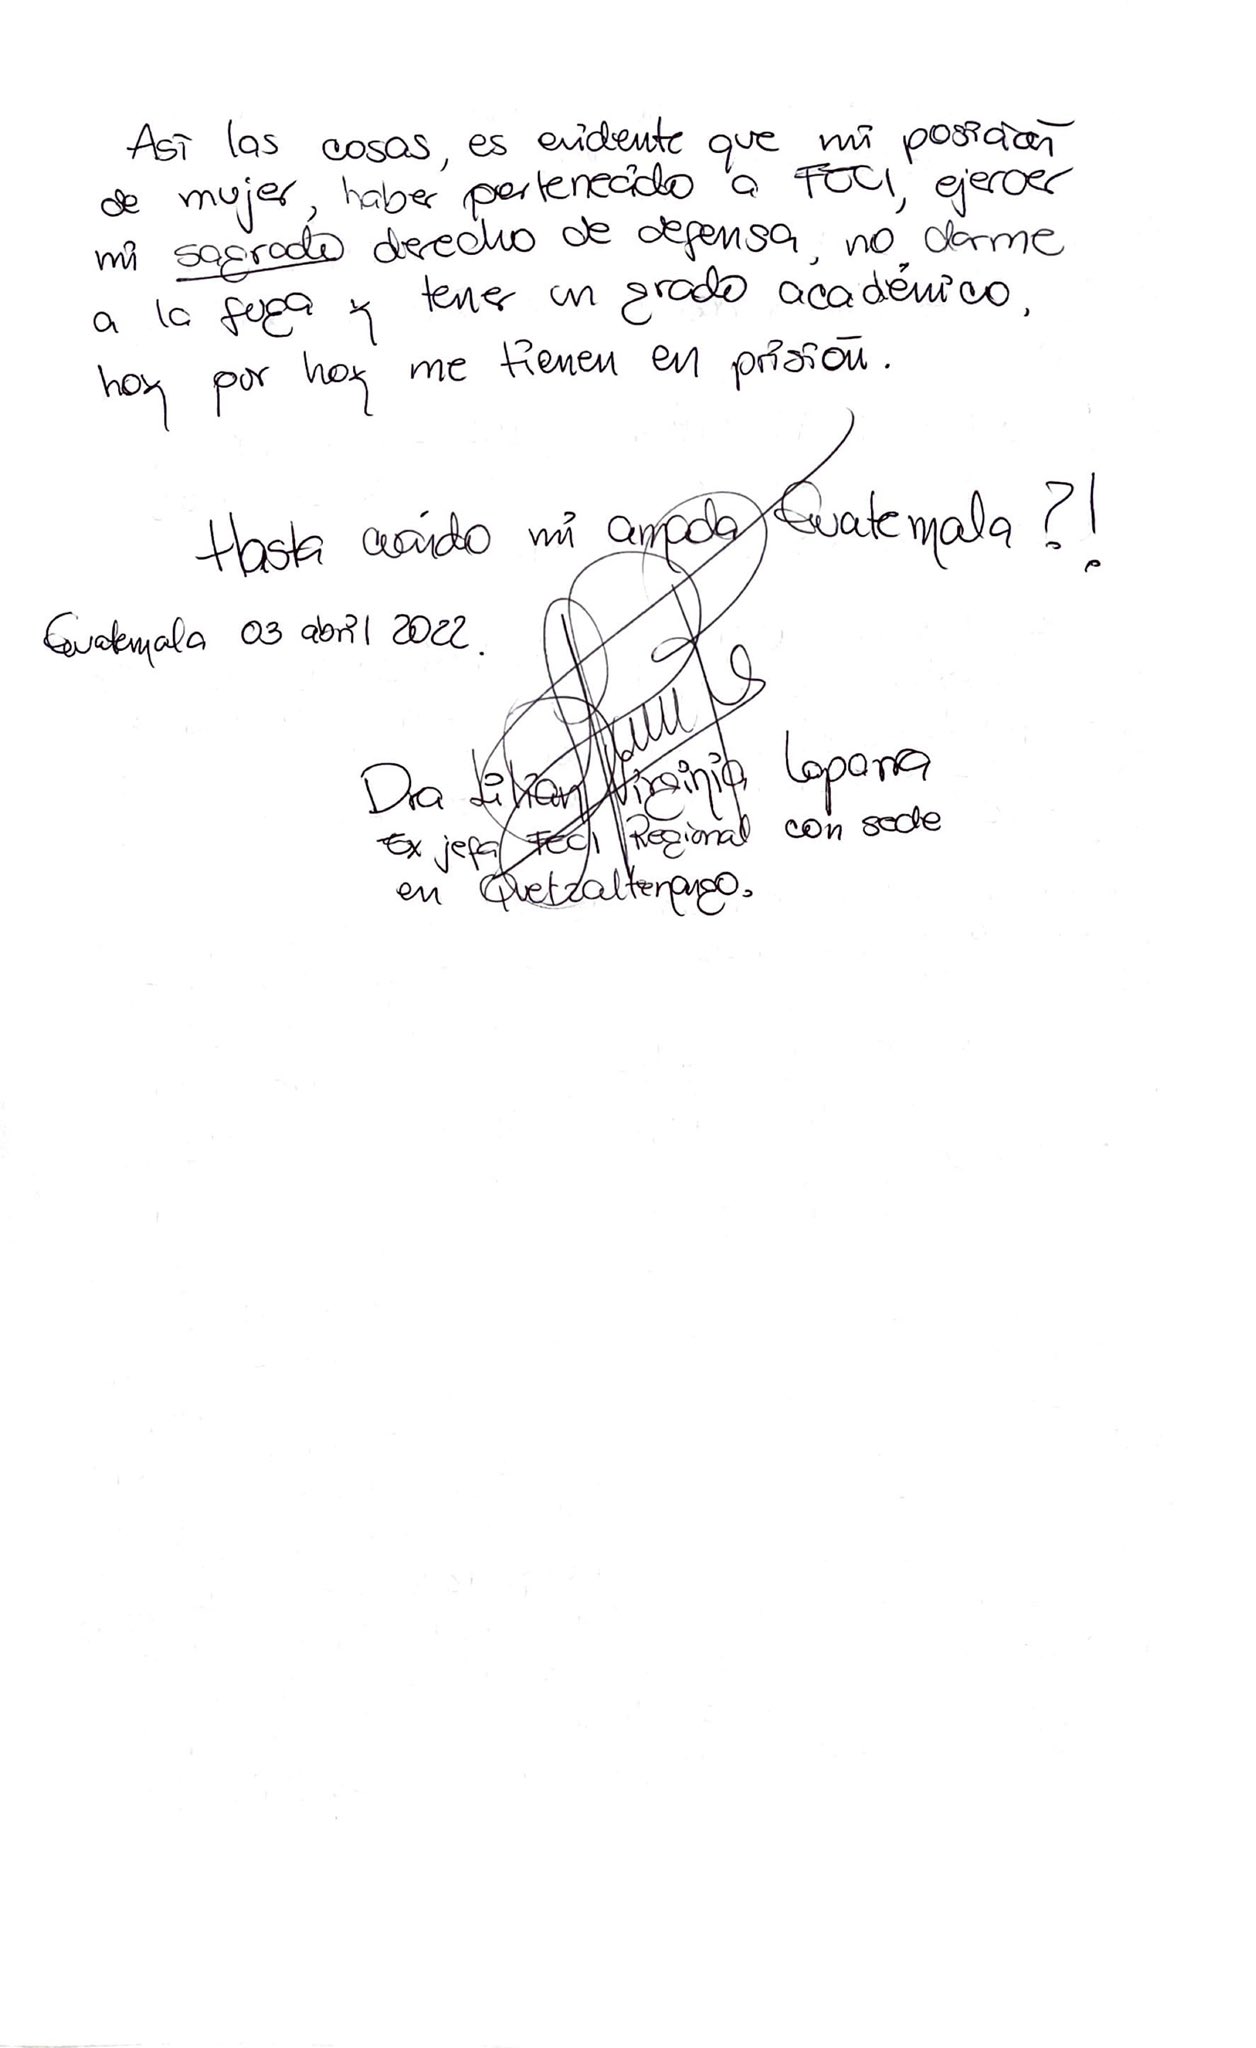 Así las cosas, es evidente que mi posición
de mujer, haber pertenecido a FECI, ejercer
mi sagrado derecho de defensa, no darme
a la fuga y tener un grado académico,
hoy por hoy me tienen en prisión.
Hasta cuándo mi amada Guatemala?!
Guatemala 03 abril 2022.
Dra Lilian Virginia Laparra
Ex jefa FECI Regional con sede
en Quetzaltenango.